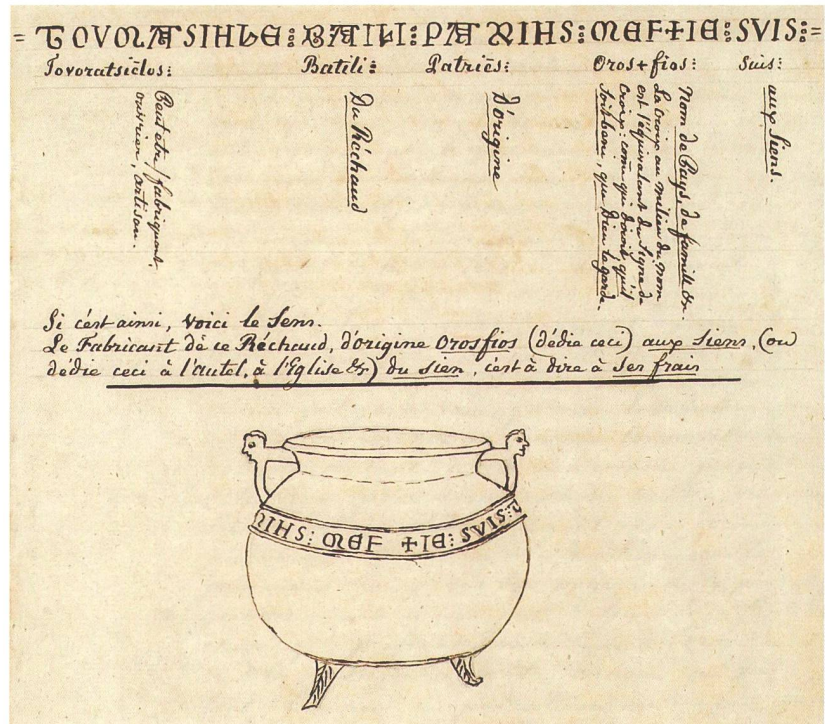 = TOVMATSIHLE : BATILI : PATRIHS : MEF+IE : SVIS : =
Tovoratsiēlos : Batili : Patriēs : Oros+fios : Suis :
Peut etre / fabriquant,
ouvrier, artisan.
Du Réchaud
D'origine
Nom de Pays, de famille &c.
La croix au milieu du nom
est l'équivalent du signe de
Croix, come qui diroit qu'il
soit beni, que Dieu le garde.
aux Siens.
Si c'est ainsi, voici le Sens.
Le Fabricant de ce Réchaud, d'origine Orosfios (dédie ceci) aux Siens, (ou
dédie ceci à l'autel, à l'Eglise &c) du sien, c'est à dire à ses frais
RIHS : MEF +IE : SVIS :